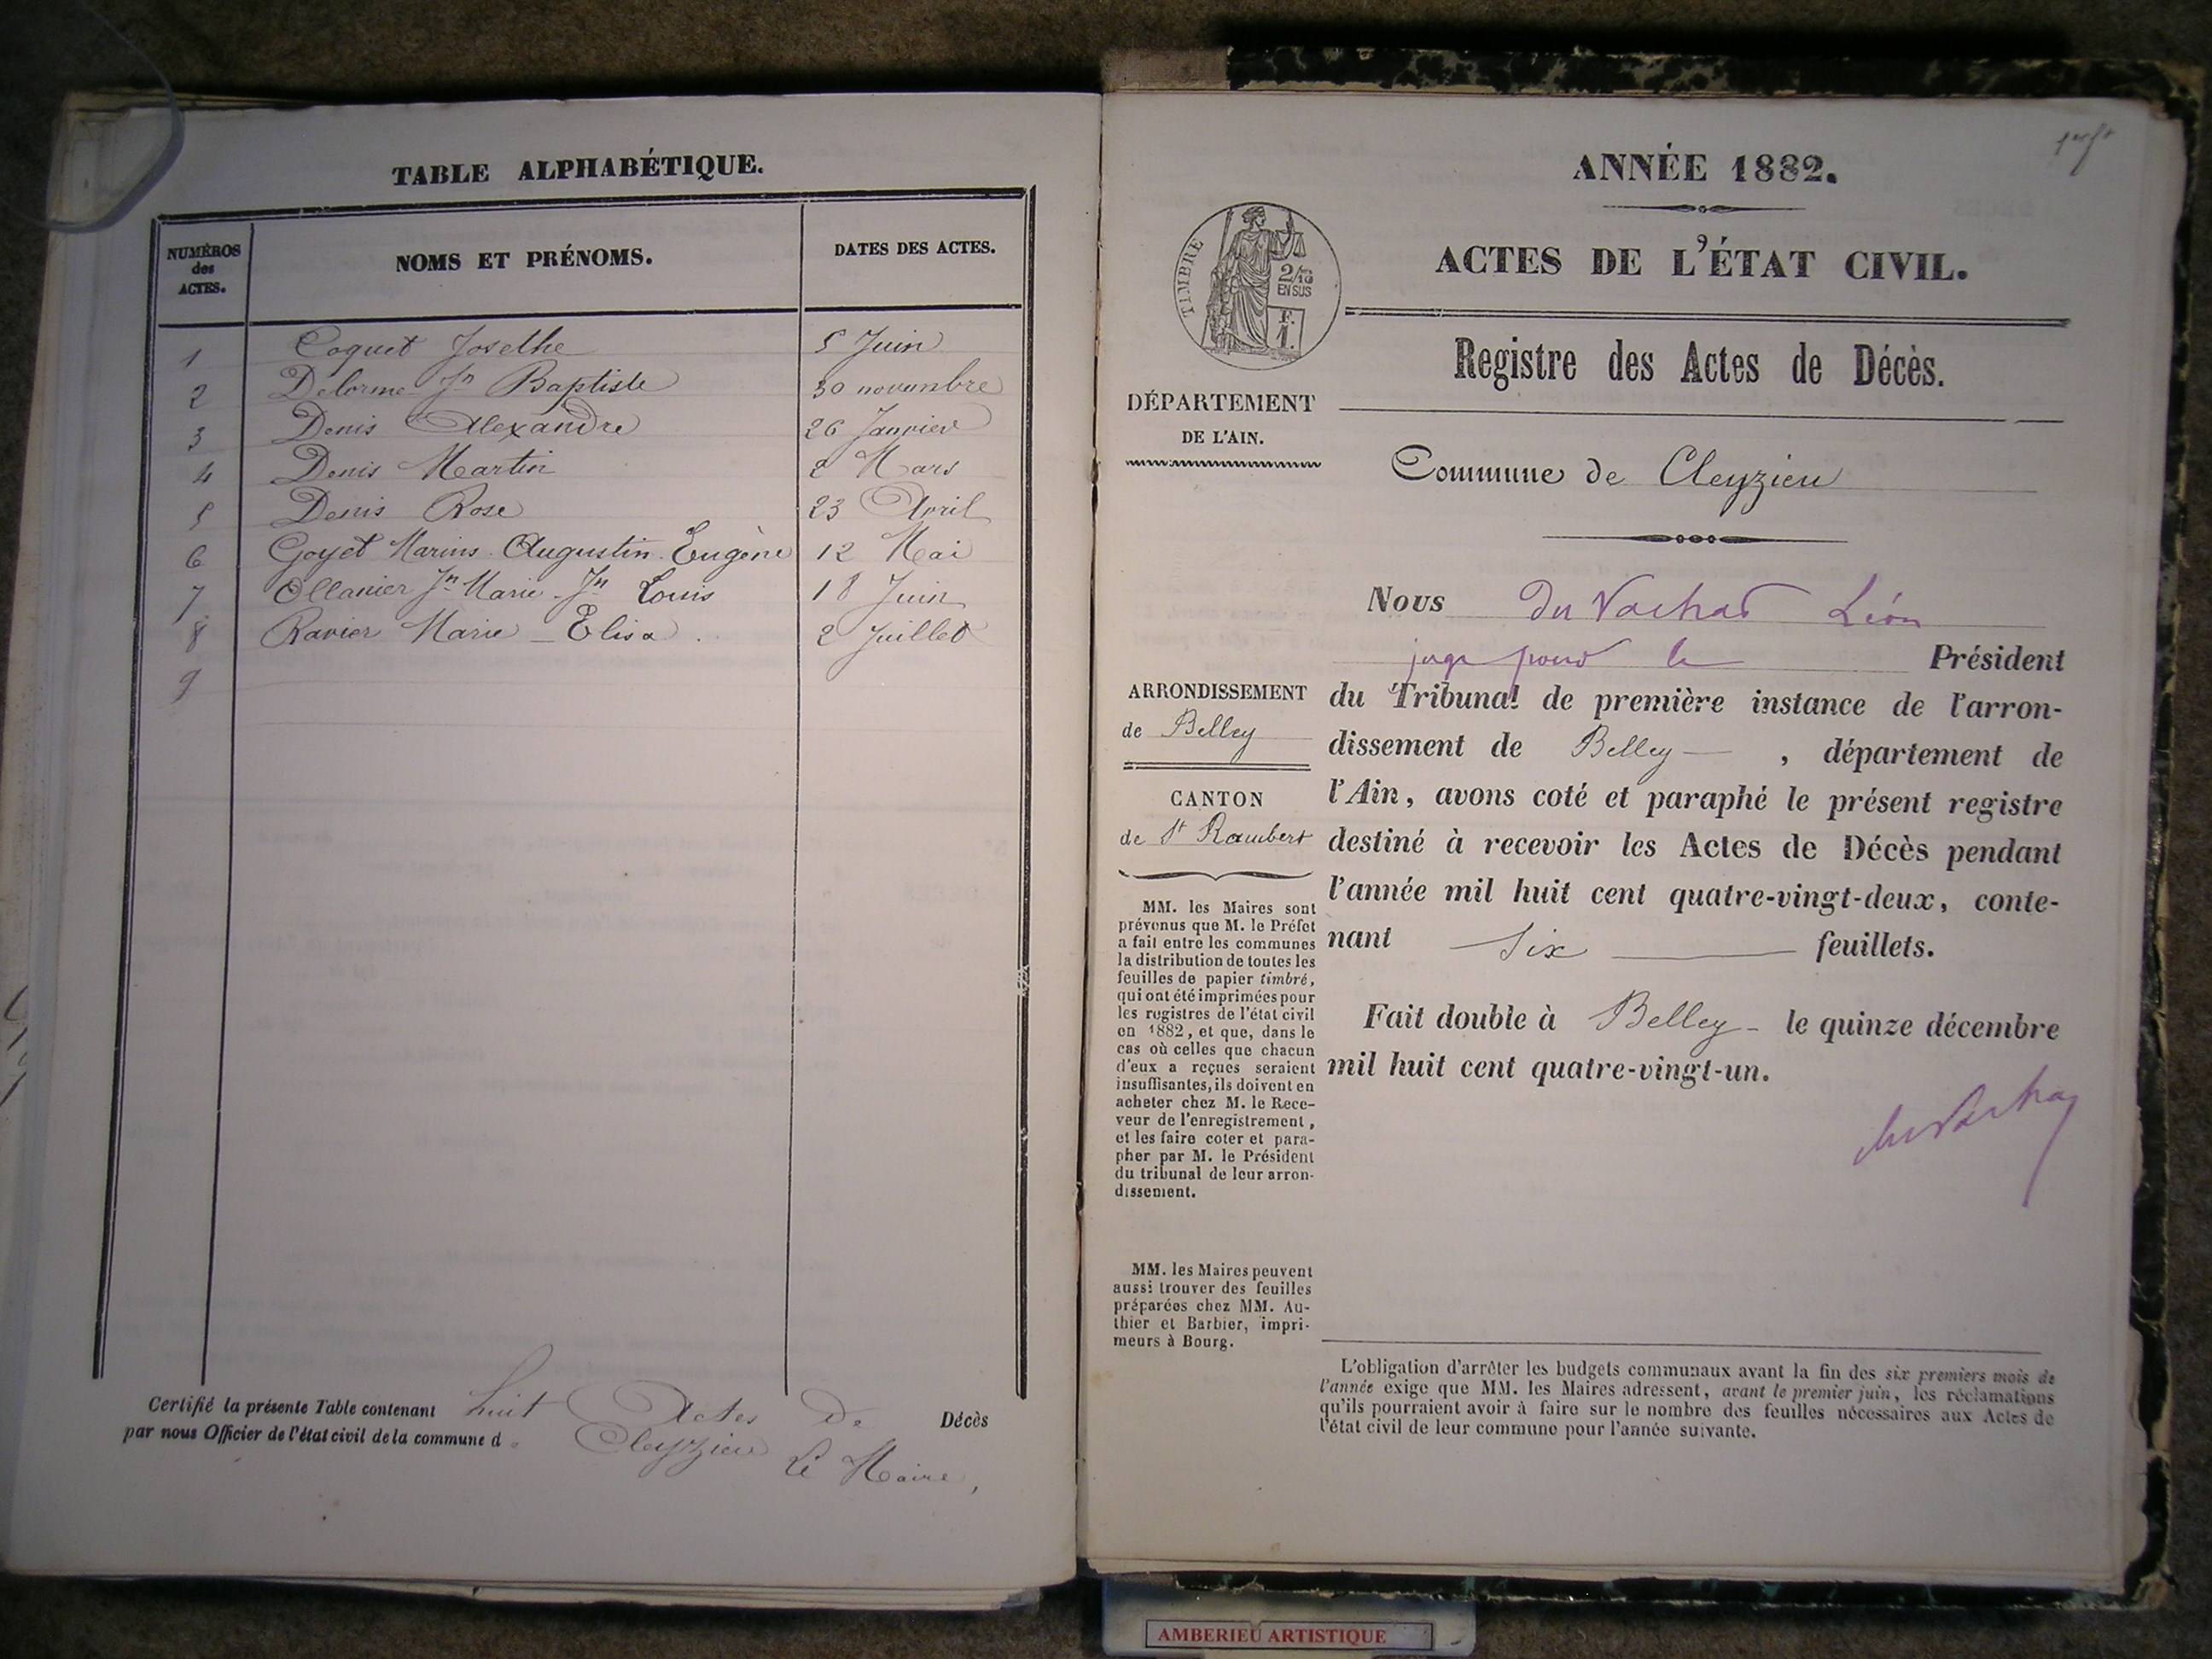 TABLE ALPHABÉTIQUE.
NUMÉROS des ACTES. NOMS ET PRÉNOMS. DATES DES ACTES.
1 Coquet Josethe 5 Juin
2 Delorme Jn Baptiste 30 novembre
3 Denis Alexandre 26 Janvier
4 Denis Martin 2 Mars
5 Denis Rose 23 Avril
6 Goyet Marius Augustin Eugène 12 Mai
7 Ollanier Jn Marie Jn Louis 18 Juin
8 Ravier Marie - Elisa. 2 Juillet
9
Certifié la présente Table contenant huit Actes De Décès
par nous Officier de l'état civil de la commune d Cleyzieu
Le Maire,
ANNÉE 1882.
ACTES DE L'ÉTAT CIVIL.
TIMBRE
2/10
EN SUS
F.
1.
Registre des Actes de Décès.
DÉPARTEMENT
DE L'AIN.
Commune de Cleyzieu
Nous du Vachat Léon
juge pour le Président
du Tribunal de première instance de l'arron-
dissement de Belley , département de
l'Ain, avons coté et paraphé le présent registre
destiné à recevoir les Actes de Décès pendant
l'année mil huit cent quatre-vingt-deux, conte-
nant six feuillets.
Fait double à Belley - le quinze décembre
mil huit cent quatre-vingt-un.
du Vachat
ARRONDISSEMENT
de Belley
CANTON
de St Rambert
MM. les Maires sont
prévenus que M. le Préfet
a fait entre les communes
la distribution de toutes les
feuilles de papier timbré,
qui ont été imprimées pour
les registres de l'état civil
en 1882, et que, dans le
cas où celles que chacun
d'eux a reçues seraient
insuffisantes, ils doivent en
acheter chez M. le Rece-
veur de l'enregistrement,
et les faire coter et para-
pher par M. le Président
du tribunal de leur arron-
dissement.
MM. les Maires peuvent
aussi trouver des feuilles
préparées chez MM. Au-
thier et Barbier, impri-
meurs à Bourg.
L'obligation d'arrêter les budgets communaux avant la fin des six premiers mois de
l'année exige que MM. les Maires adressent, avant le premier juin, les réclamations
qu'ils pourraient avoir à faire sur le nombre des feuilles nécessaires aux Actes de
l'état civil de leur commune pour l'année suivante.
AMBERIEU ARTISTIQUE